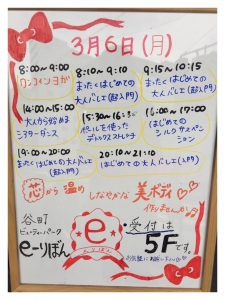 3月6日(月)
8:00〜9:00
ワンコインヨガ
8:10〜9:10
まったくはじめての
大人バレエ(超入門)
9:15〜10:15
まったくはじめての
大人バレエ(超入門)
14:00〜15:00
大人から始める
シアターダンス
15:30〜16:30
ポールを使った
デトックスストレッチ
16:00〜17:00
はじめての
シルクサスペンション
19:00〜20:00
まったくはじめての大人バレエ(超入門)
20:10〜21:10
はじめての大人バレエ(入門)
芯から温め
しなやかな美ボディ
作りませんか
谷町
ビューティーパーク
e-りぼん
e
受付は
5Fです。